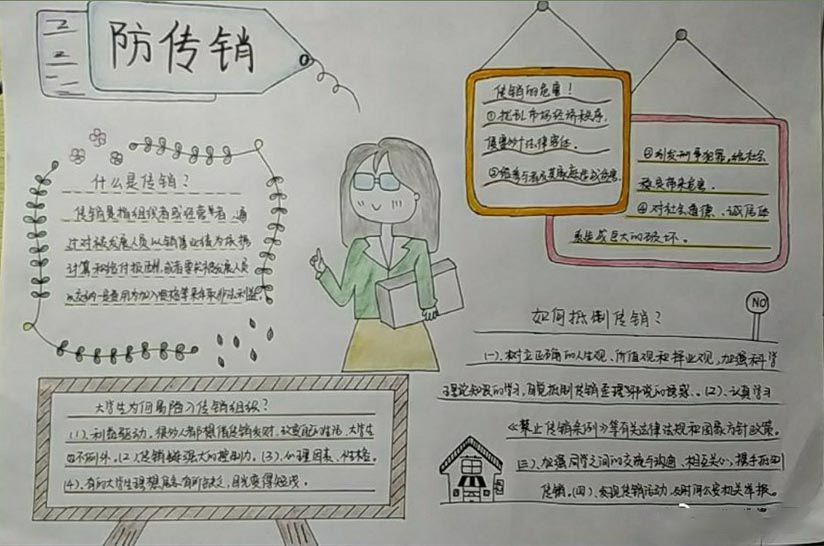 防传销
什么是传销？
传销是指组织者或经营者，通
过对被发展人员以销售业绩为依据
计算和给付报酬，或者要求被发展人员
以交纳一定费用为加入资格等来牟取非法利益。
传销的危害！
①扰乱市场经济秩序，
侵害
③引发刑事犯罪，给社会
稳定带来危害。
④对社会道德、诚信体
系造成巨大的破坏。
如何抵制传销？
NO
(一)、树立正确的人生观、价值观和择业观，加强科学
理论知识的学习，自觉抵制传销歪理邪说的诱惑。(2)、认真学习
《禁止传销条例》等有关法律法规和国家方针政策。
(三)、加强同学之间的交流与沟通、相互关心，携手抵制
传销。(四)、发现传销活动，及时向公安机关举报。
大学生为何易陷入传销组织？
(1)、利益驱动。很多人都想借传销发财、改变自己的生活、大学生
也不例外。(2)传销极强大的控制力。(3)、心理因素、性格。
(4)、有的大学生理想信念有所缺乏，目光变得短浅。